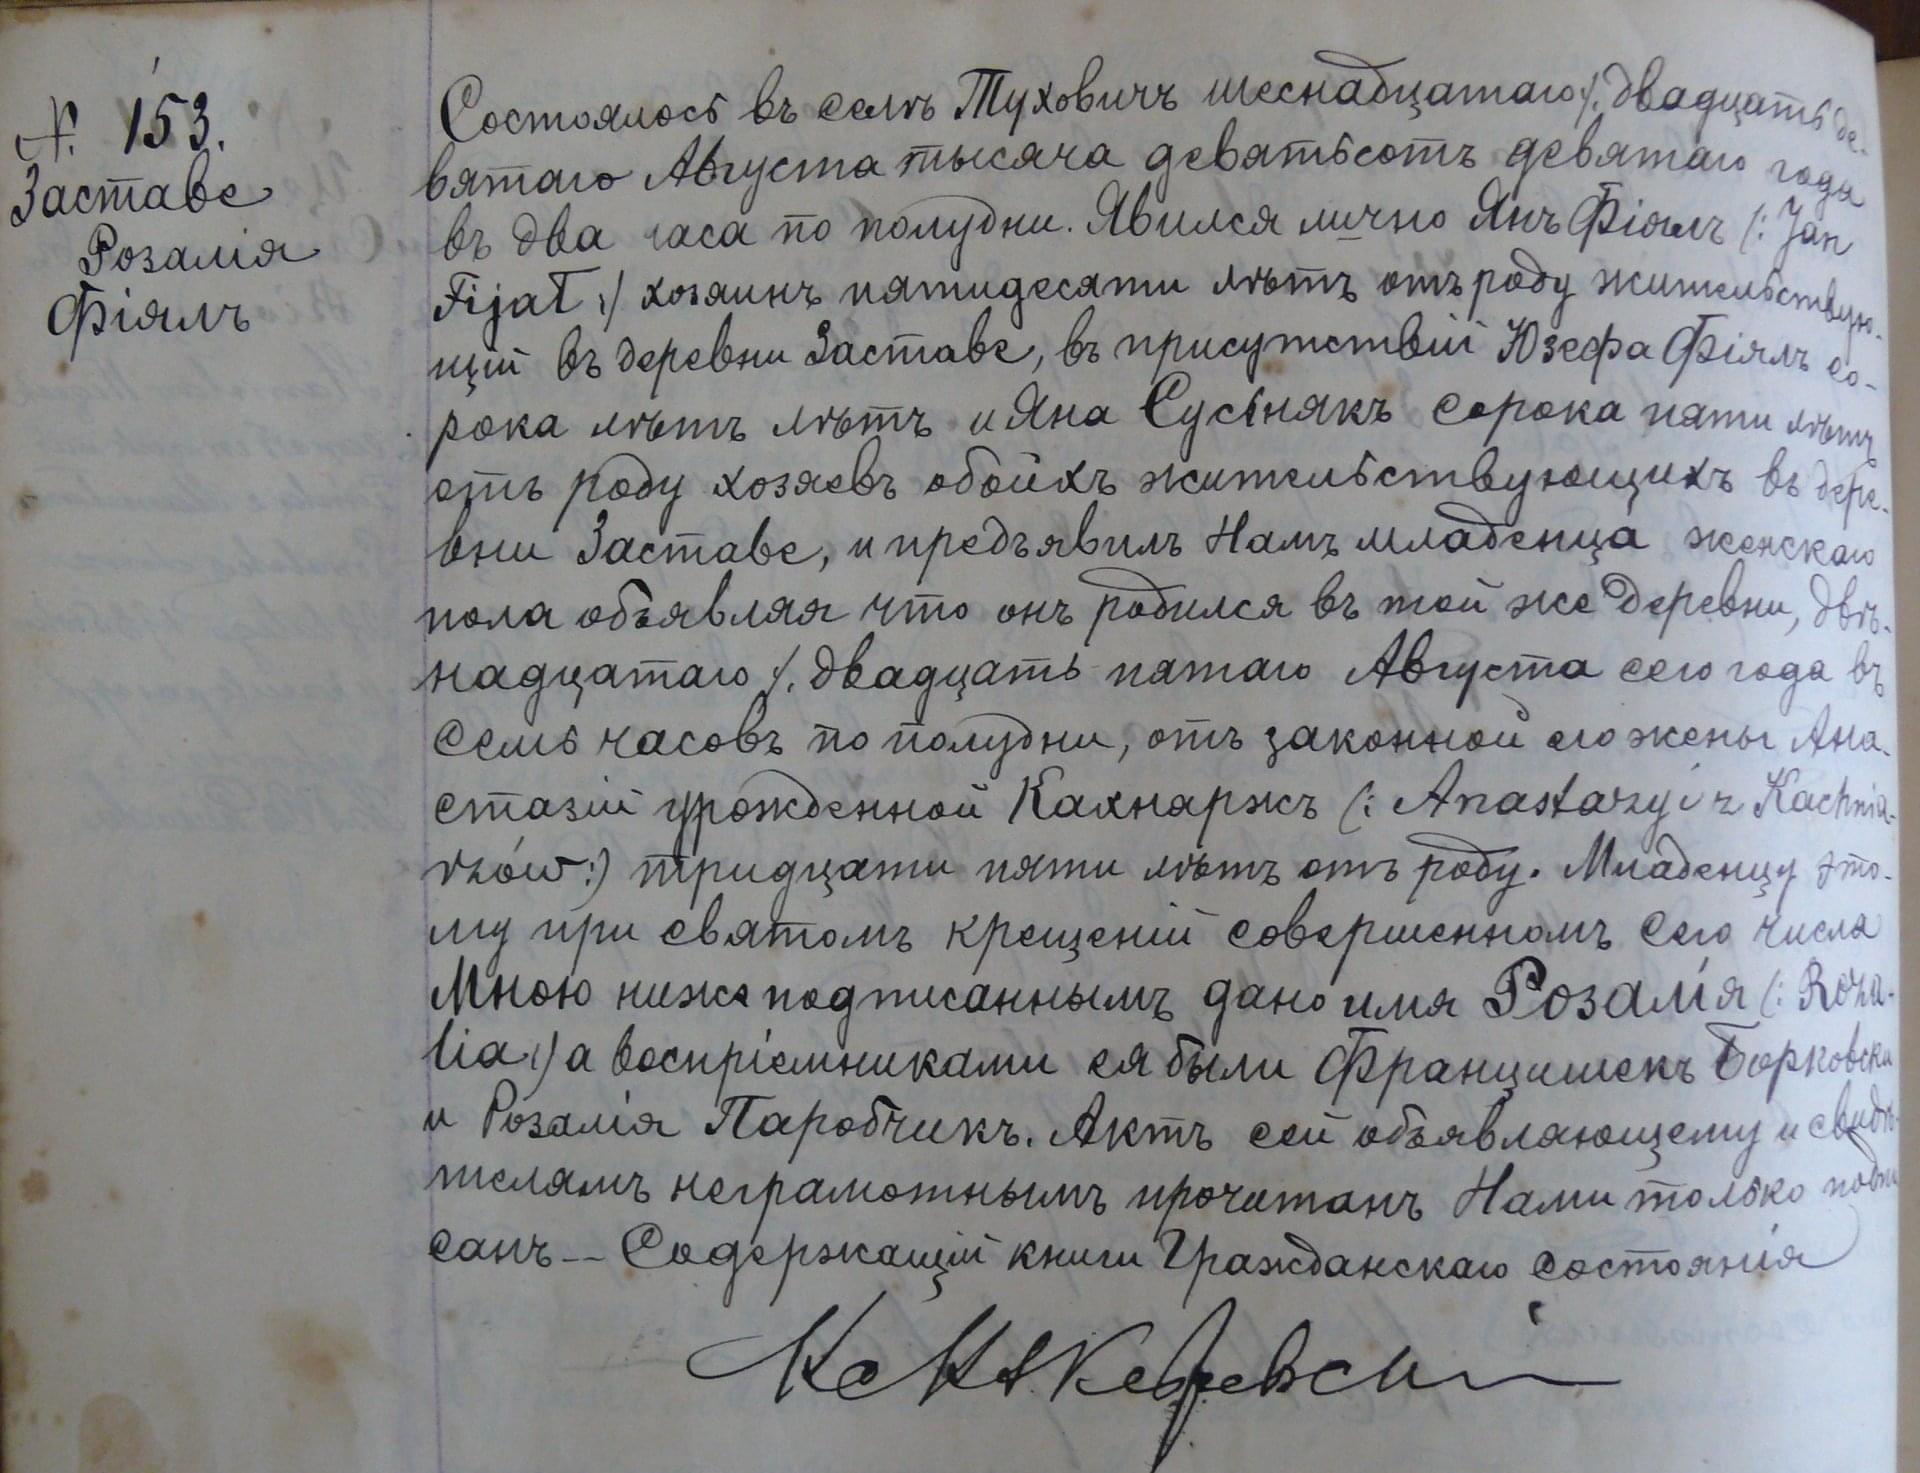 N. 153.
Заставе
Розалія
Фіялъ
Состоялось въ селѣ Туховичъ шеснадцатаго /. двадцать де-
вятаго Августа тысяча девятьсотъ девятаго года
въ два часа по полудни. Явился лично Янъ Фіялъ (: Jan
Fijał :) хозяинъ пятидесяти лѣтъ отъ роду жительствую-
щій въ деревни Заставе, въ присутствіи Юзефа Фіялъ со-
рока лѣтъ лѣтъ и Яна Сусьнякъ сорока пяти лѣтъ
отъ роду хозяевъ обойхъ жительствующихъ въ дере-
вни Заставе, и предъявилъ Намъ младенца женскаго
пола объявляя что онъ родился въ той же деревни, двѣ-
надцатаго /. двадцать пятаго Августа сего года въ
семь часовъ по полудни, отъ законной его жены Ана-
стазіи урожденной Кахнаржъ (: Anastazyi z Kachnia-
rzów :) тридцати пяти лѣтъ отъ роду. Младенцу это-
му при святомъ крещеніи совершенномъ сего числа
Мною ниже подписаннымъ дано имя Розалія (: Roza-
lia :) а воспріемниками ея были Францишекъ Борковски
и Розалія Паробчикъ. Актъ сей объявляющему и свидѣ-
телямъ неграмотнымъ прочитанъ Нами только подпи
санъ -- Содержащій книги Гражданскаго состоянія